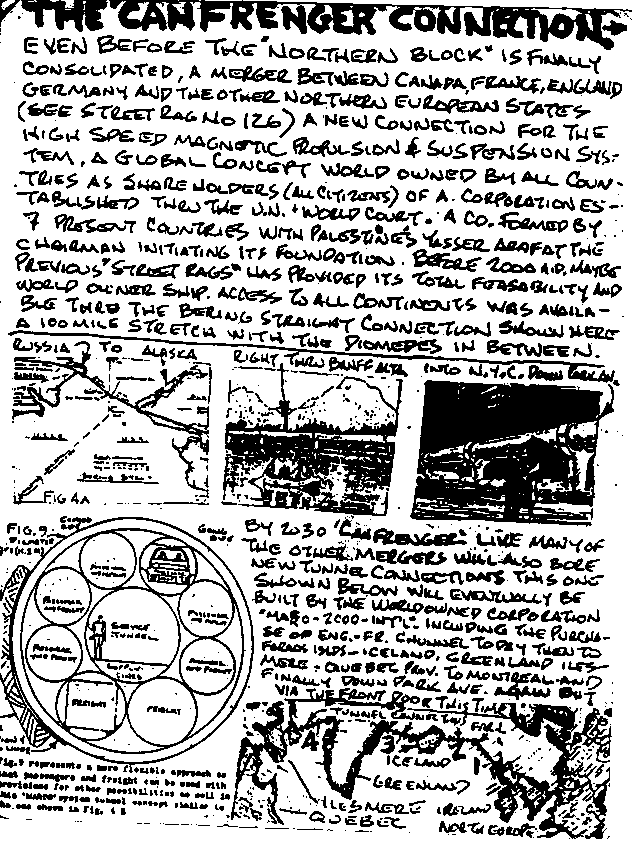 THE "CANFRENGER" CONNECTION-
EVEN BEFORE THE "NORTHERN BLOCK" IS FINALLY
CONSOLIDATED, A MERGER BETWEEN CANADA, FRANCE, ENGLAND
GERMANY AND THE OTHER NORTHERN EUROPEAN STATES
(SEE STREET RAG NO 126) A NEW CONNECTION FOR THE
HIGH SPEED MAGNETIC PROPULSION & SUSPENSION SYS-
TEM, A GLOBAL CONCEPT WORLD OWNED BY ALL COUN-
TRIES AS SHAREHOLDERS (ALL CITIZENS) OF A CORPORATION ES-
TABLISHED THRU THE U.N. "WORLD COURT. A CO. FORMED BY
7 PRESENT COUNTRIES WITH PALESTINE'S YASSER ARAFAT THE
CHAIRMAN INITIATING ITS FOUNDATION. BEFORE 2000 A.D, MAYBE
PREVIOUS "STREET RAGS" HAS PROVIDED ITS TOTAL FEASABILITY AND
WORLD OWNER SHIP. ACCESS TO ALL CONTINENTS WAS AVAILA-
BLE THRU THE BERING STRAIGHT CONNECTION SHOWN HERE
A 100 MILE STRETCH WITH THE DIOMEDES IN BETWEEN.
RUSSIA TO ALASKA
RIGHT THRU BANFF ALTA.
INTO N.Y.C. DOWN PARK AV.
FIG 4A
BY 2030 "CANFRENGER" LIKE MANY OF
THE OTHER MERGERS WILL ALSO BORE
NEW TUNNEL CONNECTIONS THIS ONE
SHOWN BELOW WILL EVENTUALLY BE
BUILT BY THE WORLD OWNED CORPORATION
2000-INT'L. INCLUDING THE PURCHA-
SE OF ENG.-FR. CHUNNEL TODAY THEN TO
ISLDS-ICELAND, GREENLAND ILES-
MERE - QUEBEC PROV. TO MONTREAL-AND
FINALLY DOWN PARK AVE. AGAIN BUT
VIA THE FRONT DOOR THIS TIME
FIG. 9
SERVICE
TUNNEL
SUPPLY
LINES
FREIGHT
FREIGHT
Fig.9 represents a more flexible approach
passengers and freight can be used with
provisions for other possibilities as well
system tunnel concept similar to
the one shown in Fig.
TUNNEL CONNECTIONS
4
3
2
1
ICELAND
GREENLAND
ILESMERE
QUEBEC
IRELAND
NORTH EUROPE